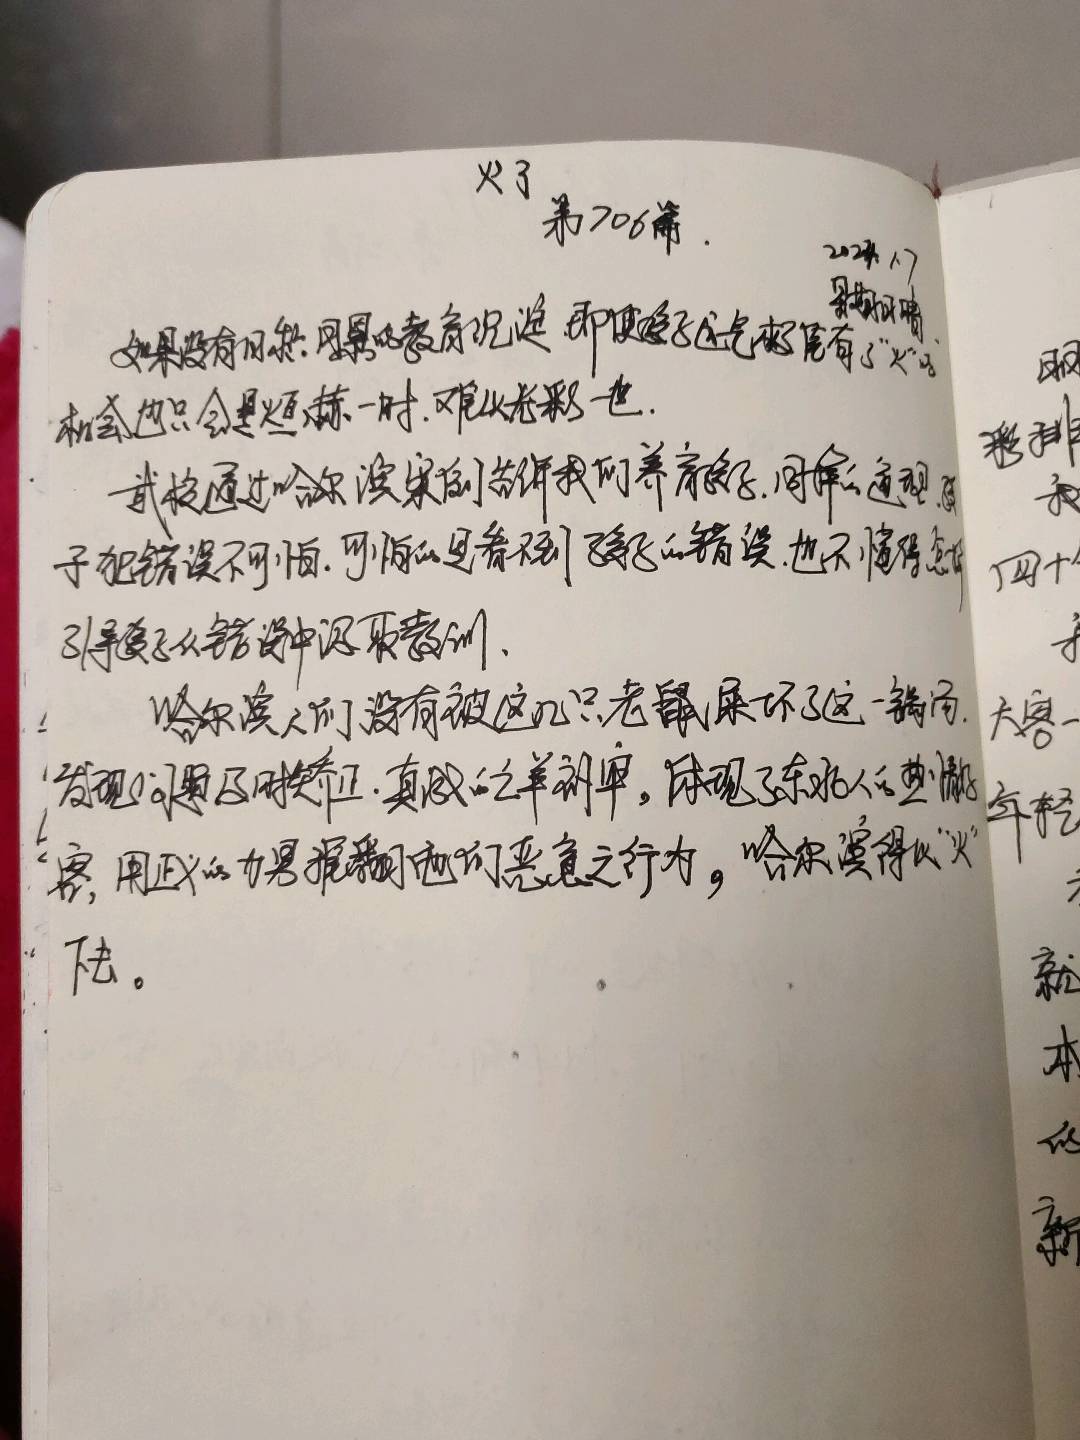 火了
第706篇.
2024.1.7
星期日晴
如果没有日积月累的教育沉淀 即使孩子运气来了偶有了"火"的
机会也只会是短暂一时.难以光彩一世.
武校通过哈尔滨案例告诉我们养育孩子.同样的道理.孩
子犯错误不可怕.可怕的是看不到孩子的错误.也不懂得怎样
引导孩子从错误中汲取教训.
哈尔滨人们没有被这几只老鼠屎坏了这一锅汤.
发现问题及时矫正.真诚的
体现了东北人的热情好
客,用正义的力量推翻他们恶意之行为,哈尔滨得以"火"
下去。
彩排
四十
大客一
年轻
就
本
的
新